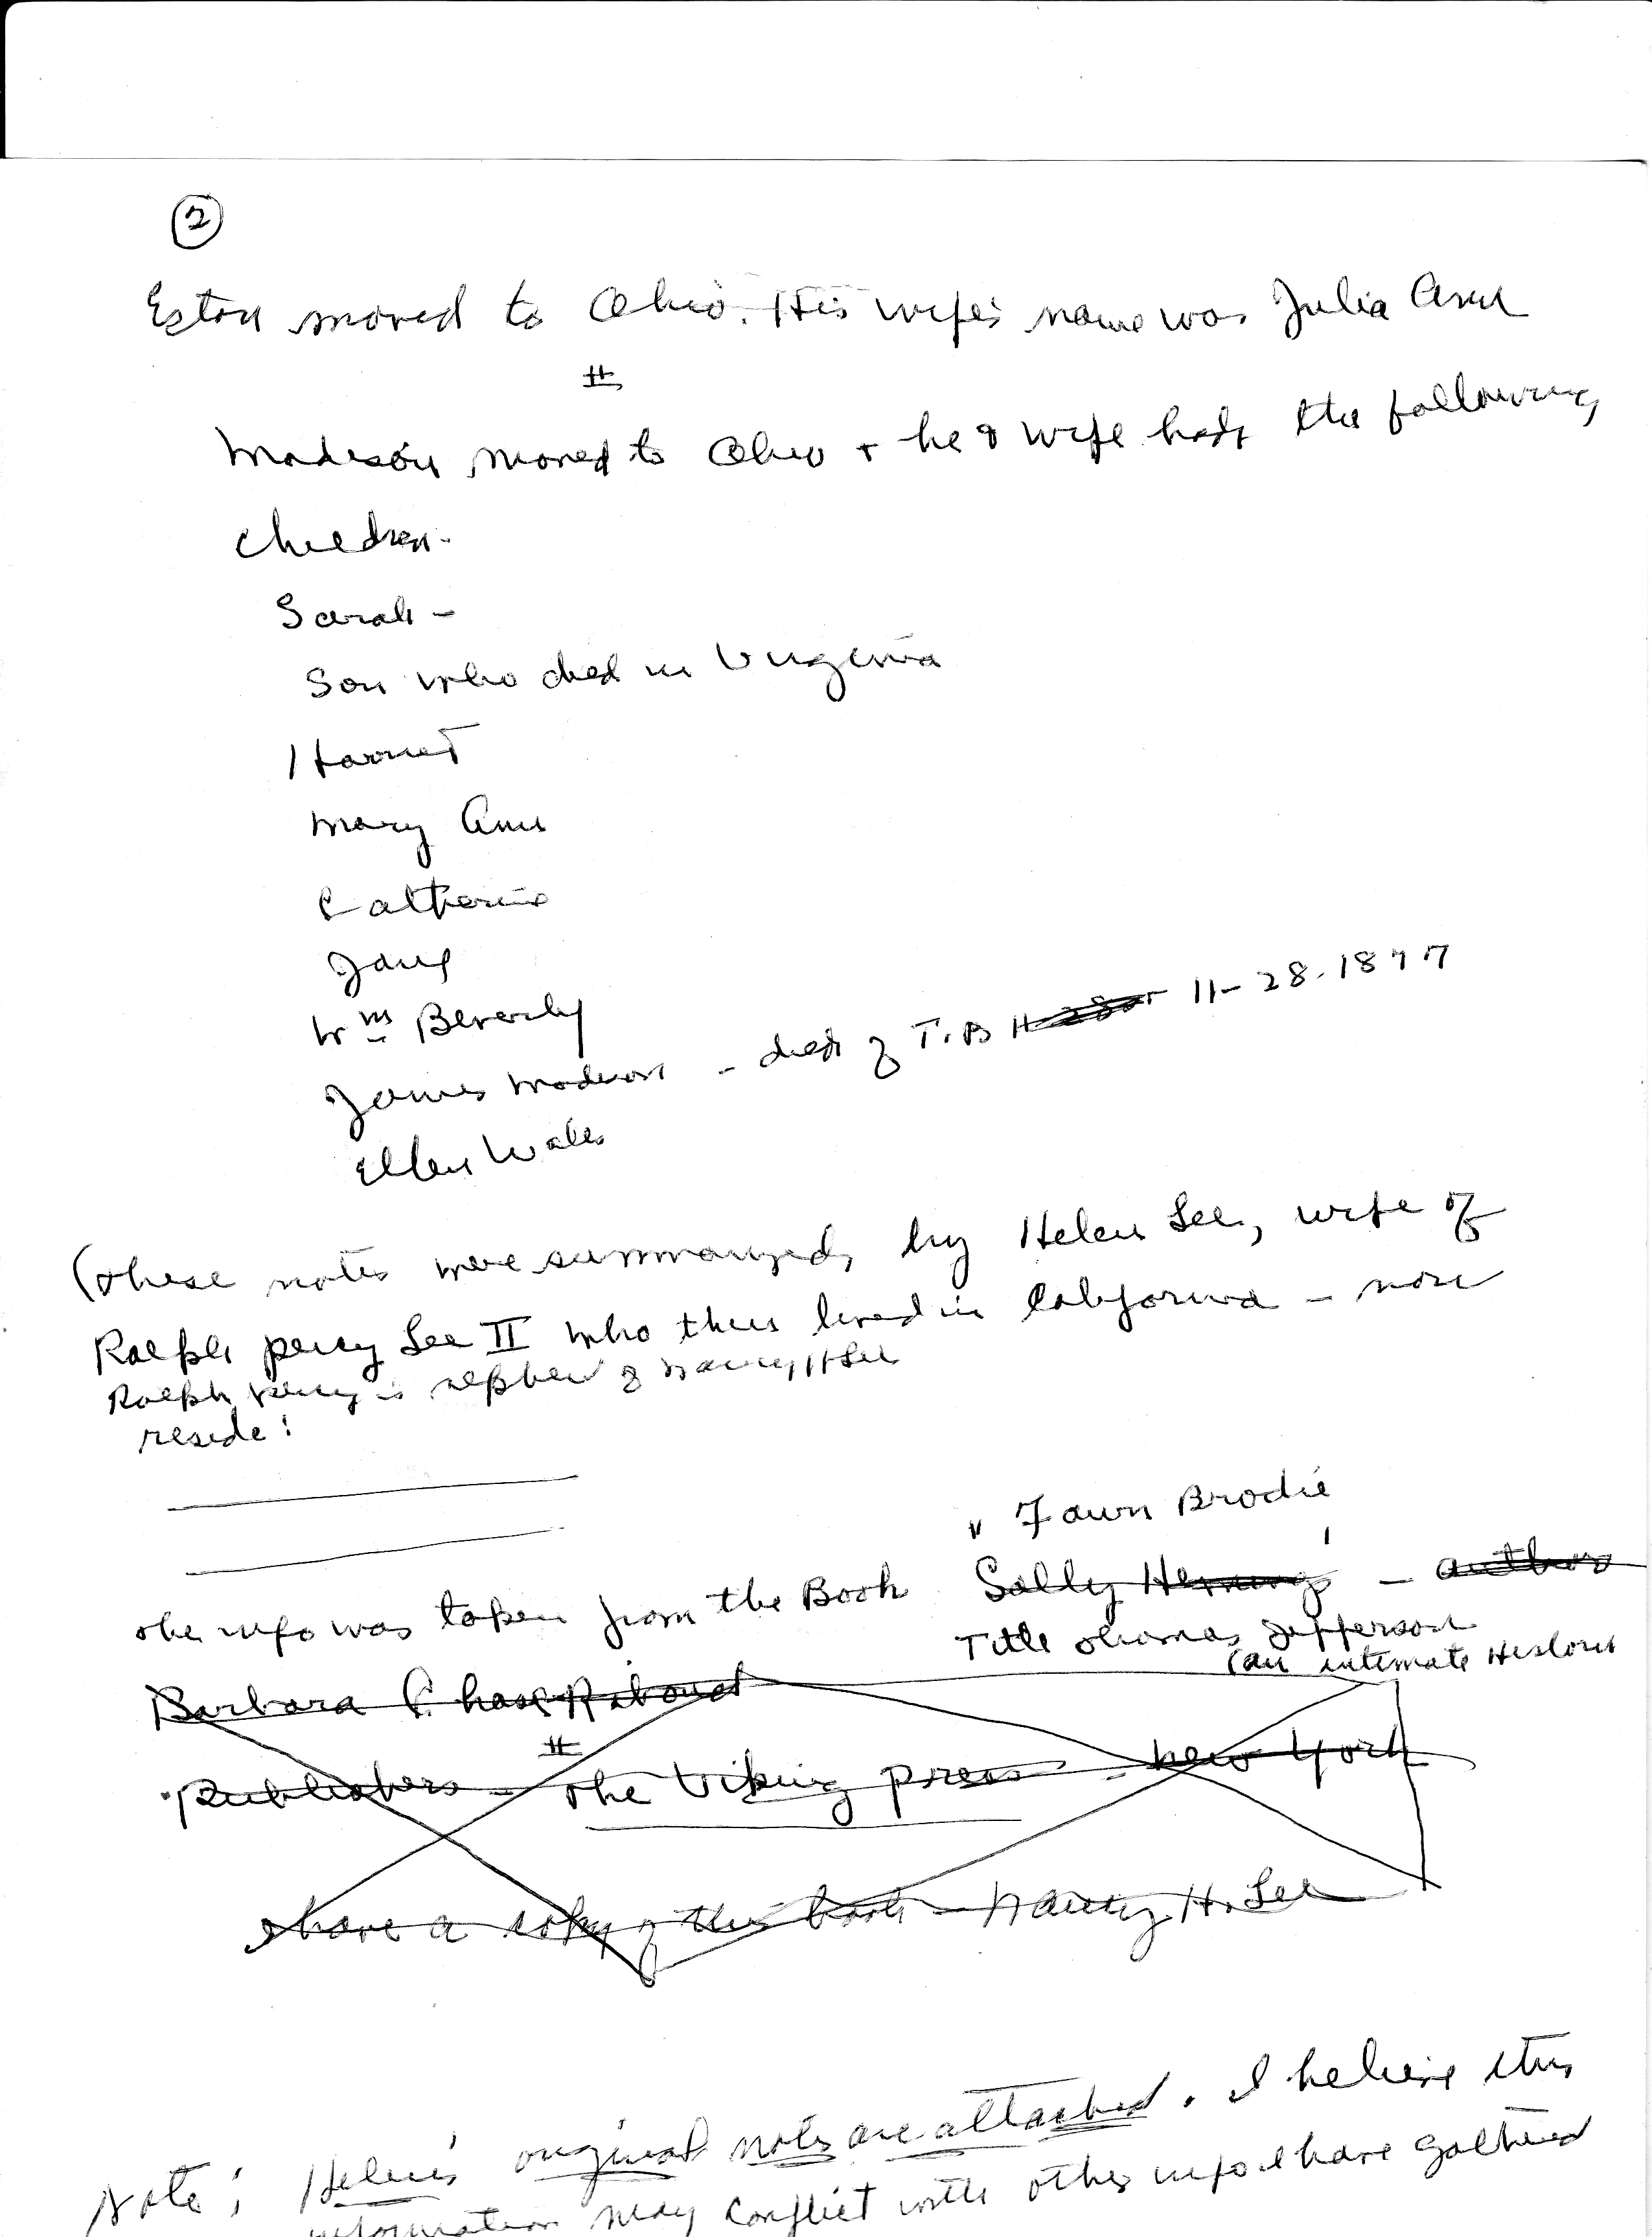 2
Eston moved to Ohio. His wife's name was Julia Ann
#
Madison moved to Ohio + he & wife had the following
children -
Sarah -
Son who died in Virginia
Harriet
Mary Ann
Catherine
Jane
Wm Beverly
James Madison - died of T.B 11-28-1897
Ellen Wales
(These notes were summarized by Helen Lee, wife of
Ralph Percy Lee II who thus lived in California - now
Ralph Percy is nephew of Nancy H Lee
reside!
" Fawn Brodie
The info was taken from the Book Sally Hemings' - author
Title Thomas Jefferson
(an intimate History
Barbara Chase-Riboud
#
Publishers - The Viking Press - New York
I have a copy of this book - Nancy H. Lee
Note: Helen's original notes are attached. I believe this
information may conflict with other info I have gathered